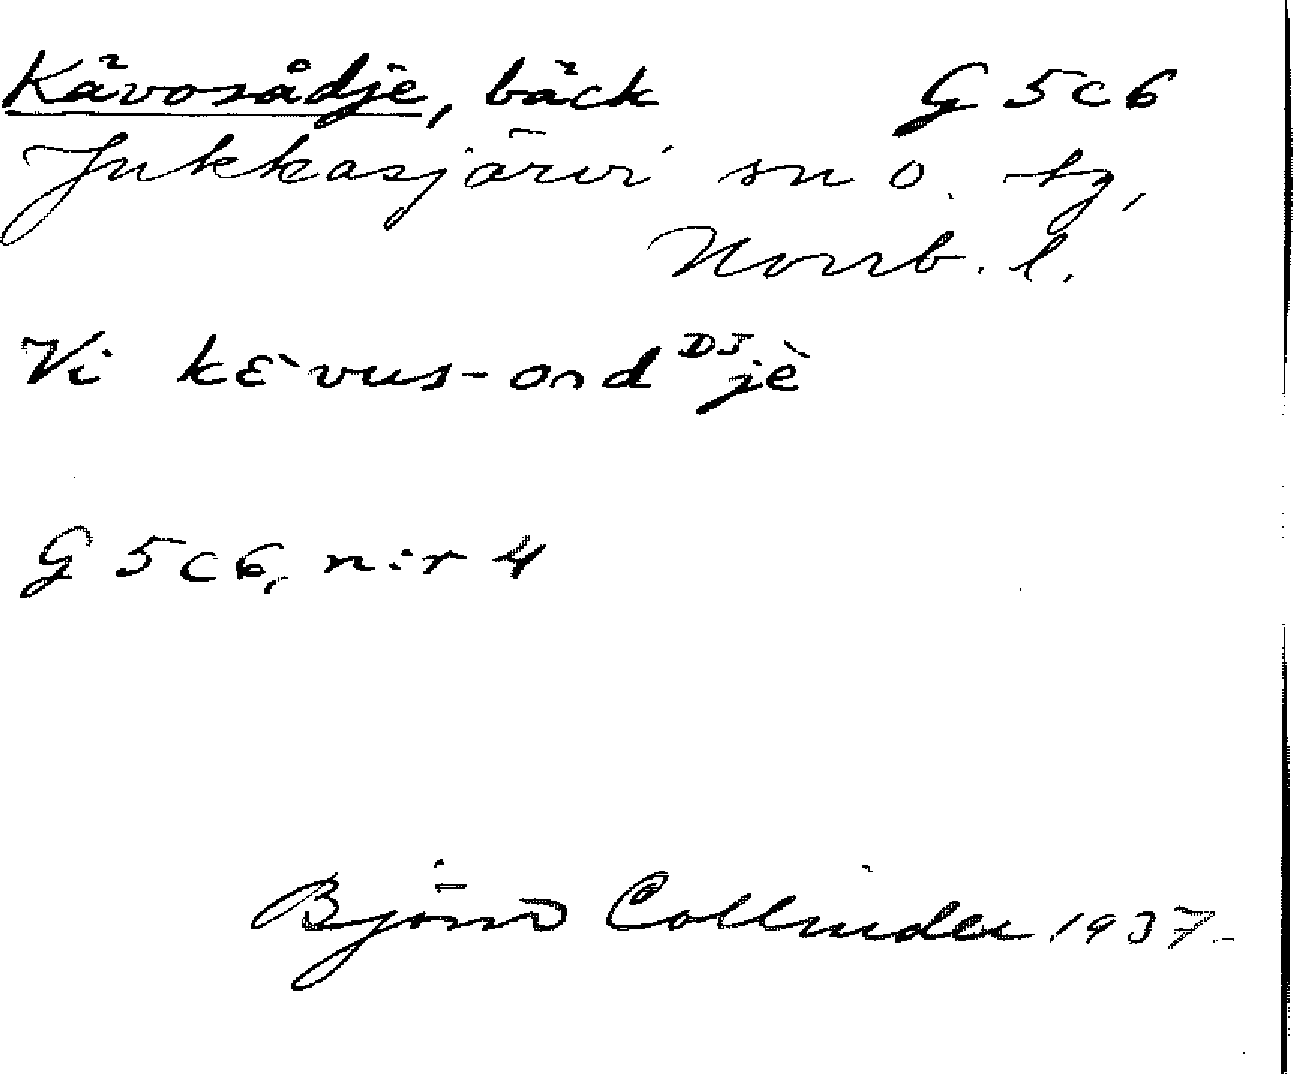 Kävosådje, bäck G 5 c 6
Jukkasjärvi sn o. tg,
Norrb. l.
Vi kɛ̀vus-ord ᴰᴶjè
G 5 c 6, n:r 4
Björn Collinder 1937.